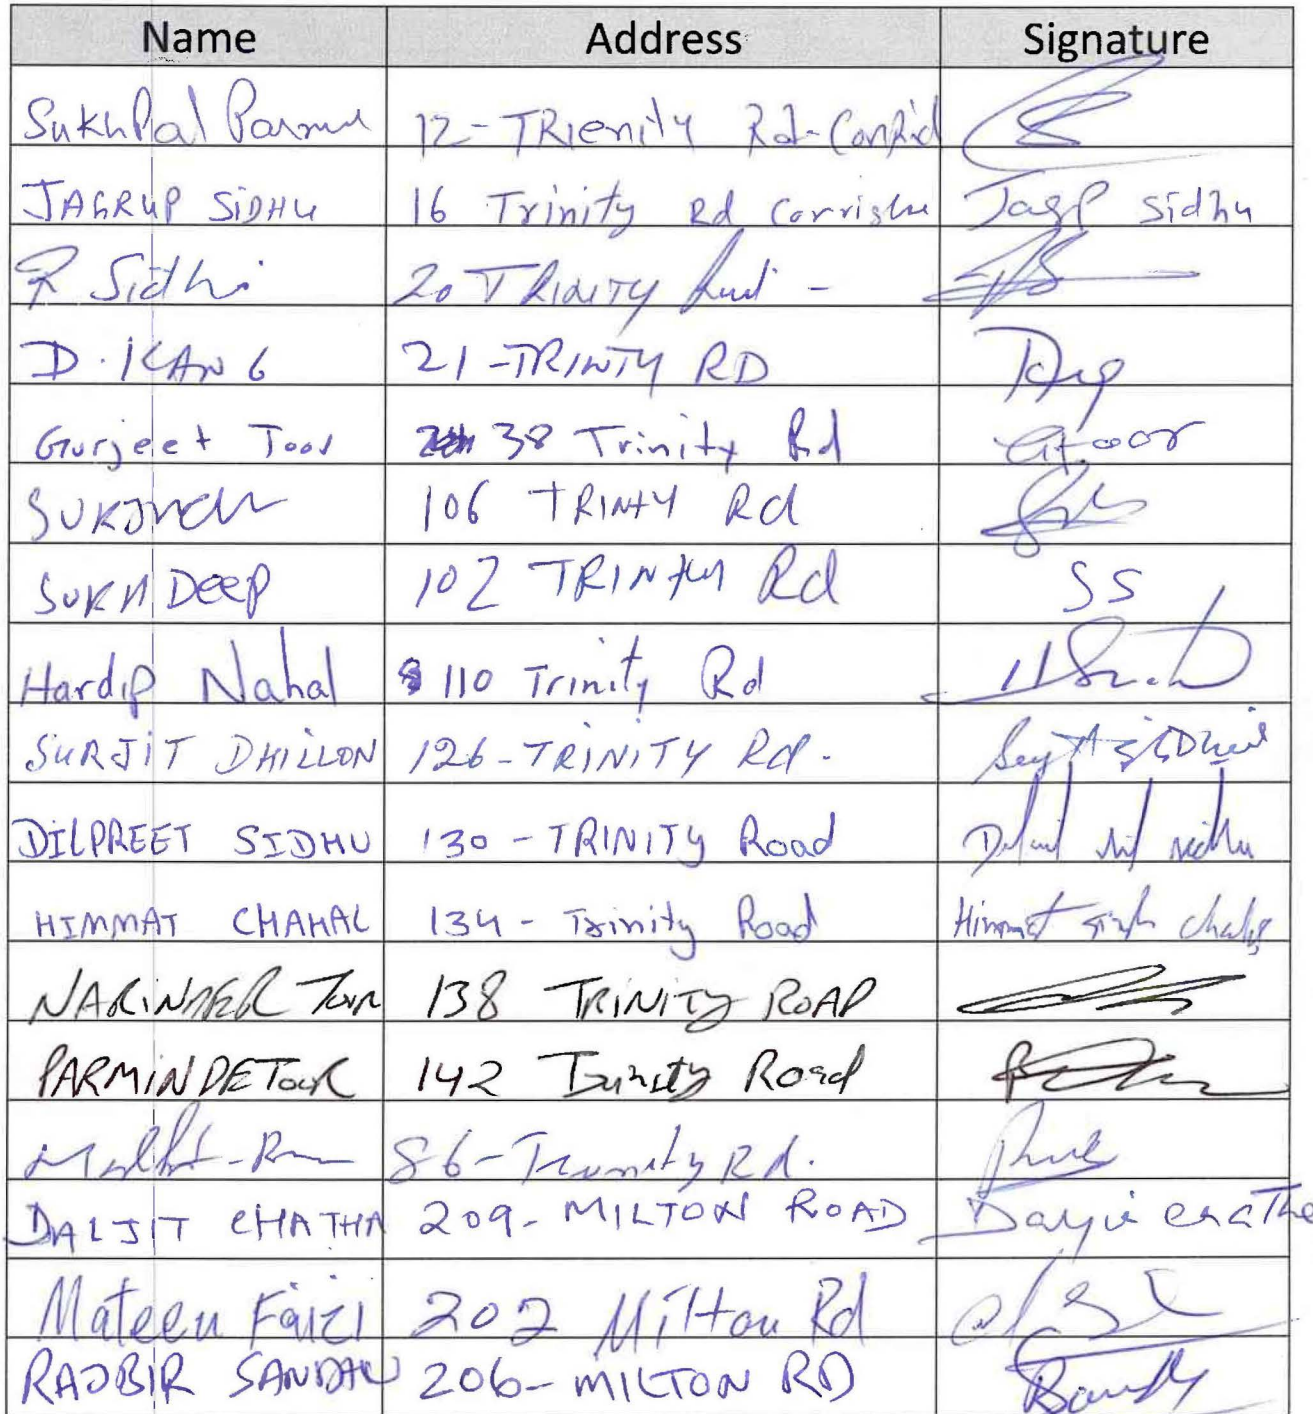 Name Address Signature
SukhPal Parmar 12-TRienity Rd-
JAGRUP SiDHU 16 Trinity Rd Jagp Sidhu
Sidhu 20 TRINITY
D. KANG 21-TRINTY RD
Gurjeet Toor 38 Trinity Rd GToor
106 TRINTY Rd
SUKHDeeP 102 Rd SS
Hardip Nahal 110 Trinity Rd
SURJiT DHILLON 126-TRiNiTY Rd.
DILPREET SIDHU 130-TRINITY Road
HIMMAT CHAHAL 134- Trinity Road Himmat Singh Chahal
NARiNDER Toor 138 TRiNiTY ROAD
PARMiNDE Toor 142 Trinity Road
86-Trinity Rd.
DALJIT CHATHA 209- MILTON ROAD
Mateen Faizi 202 Milton Rd
RAJBIR 206- MILTON RD